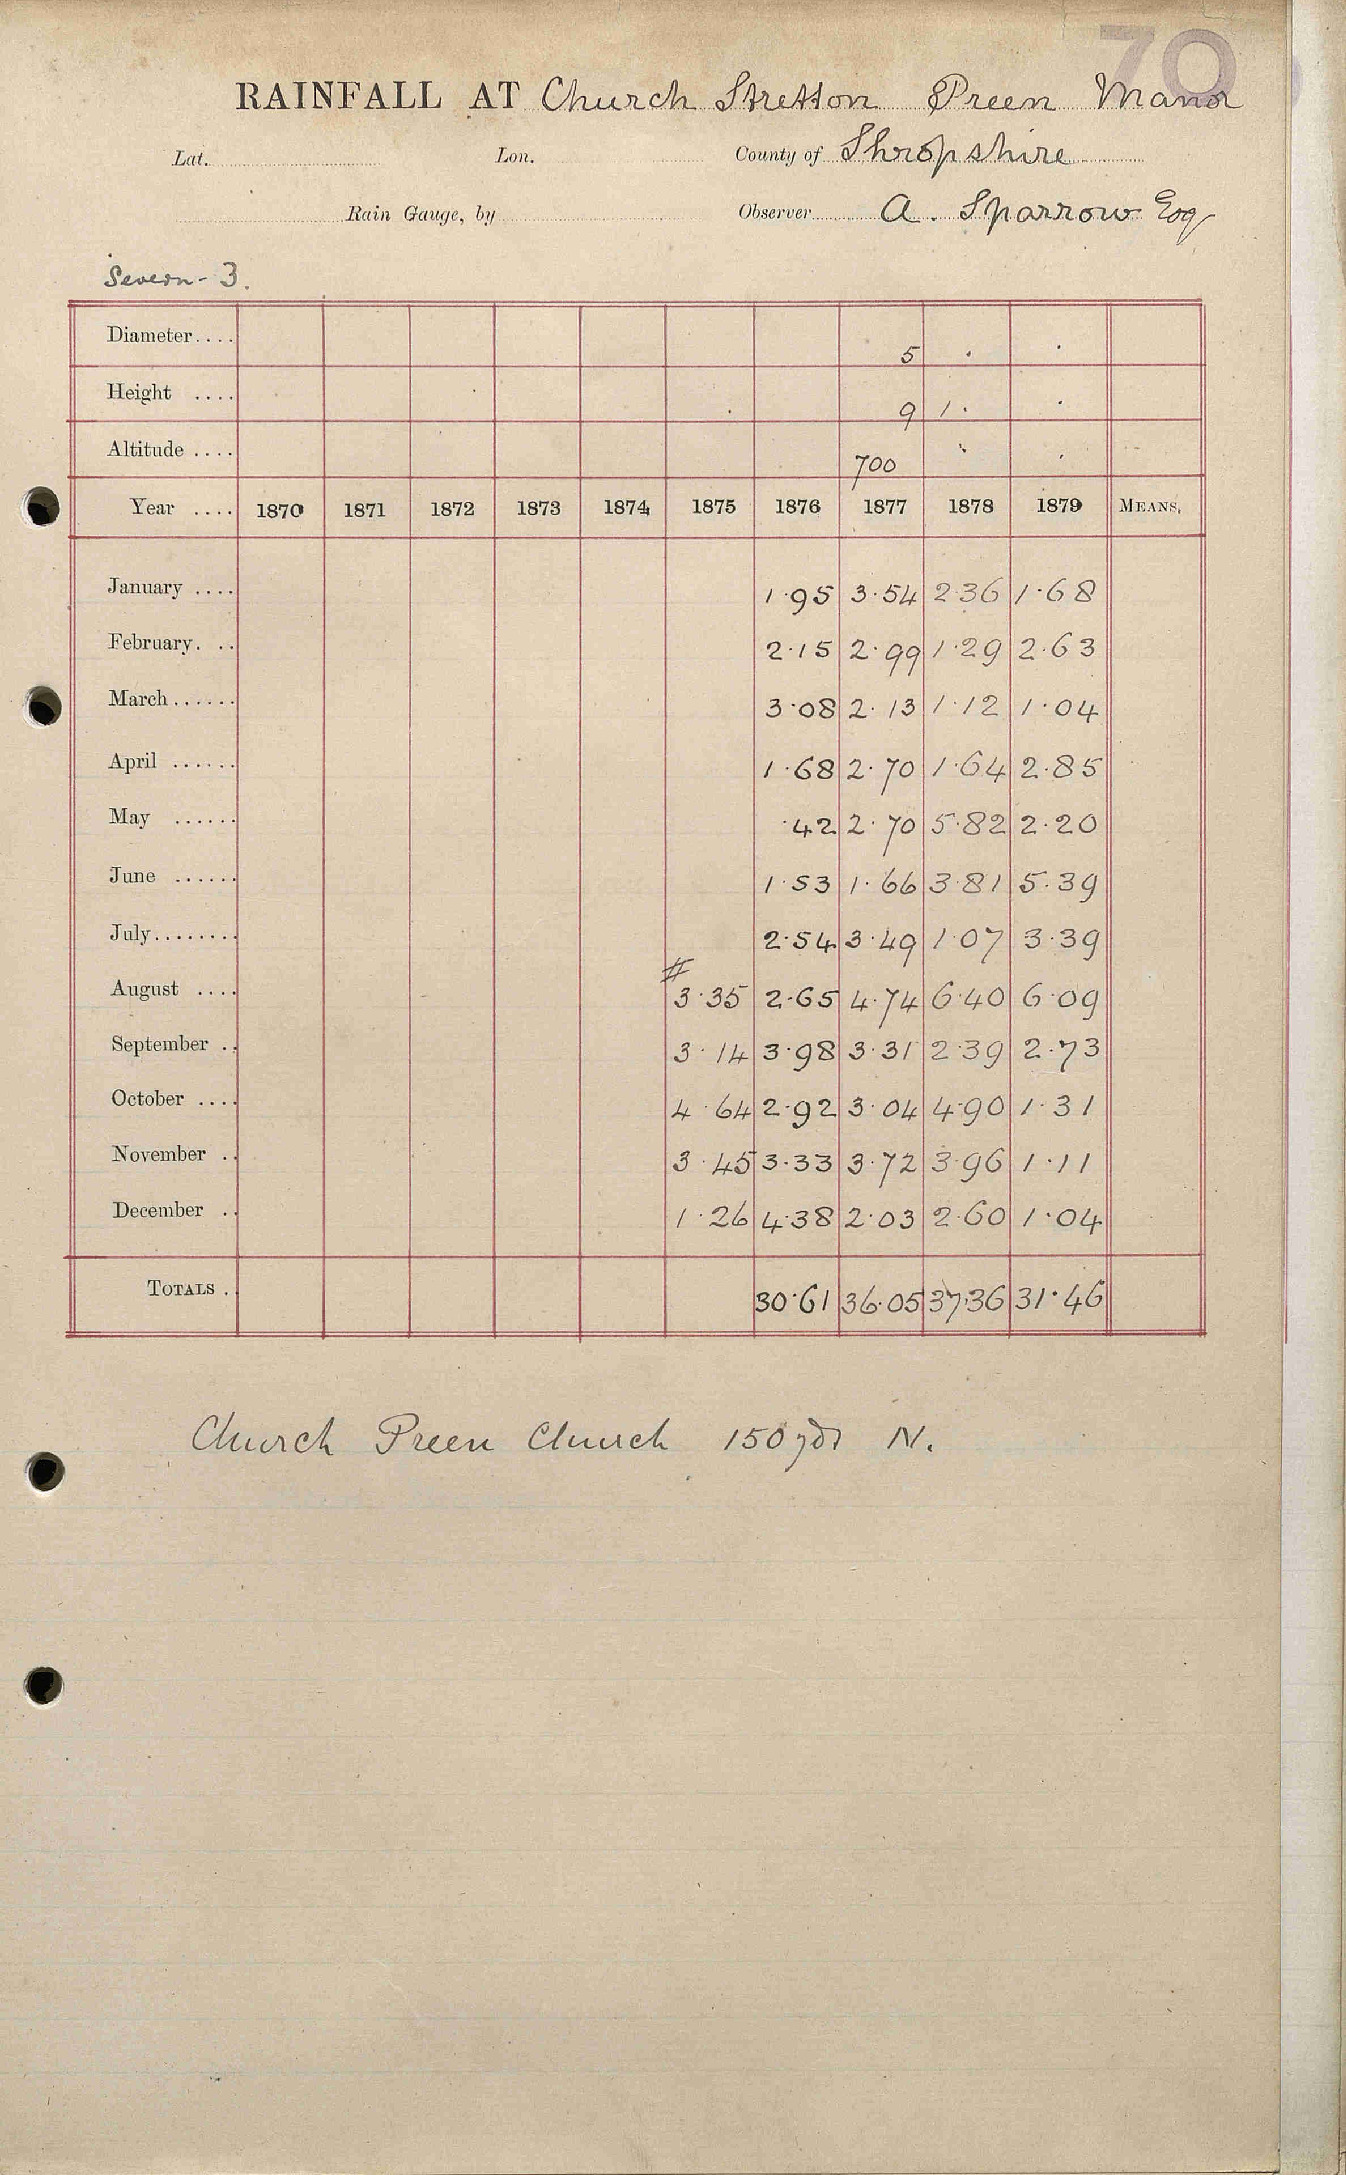 70
RAINFALL AT Church Stretton Preen Manor
Lat. Lon. County of Shropshire
Rain Gauge, by Observer A. Sparrow Esq
Severn - 3.
Diameter.... 5 . .
Height .... 9 1. .
Altitude .... 700 . .
Year .... 1870 1871 1872 1873 1874 1875 1876 1877 1878 1879 MEANS.
January .... 1.95 3.54 2.36 1.68
February. .. 2.15 2.99 1.29 2.63
March...... 3.08 2.13 1.12 1.04
April ...... 1.68 2.70 1.64 2.85
May ...... .42 2.70 5.82 2.20
June ...... 1.53 1.66 3.81 5.39
July........ 2.54 3.49 1.07 3.39
August .... # 3.35 2.65 4.74 6.40 6.09
September .. 3.14 3.98 3.31 2.39 2.73
October .... 4.64 2.92 3.04 4.90 1.31
November .. 3.45 3.33 3.72 3.96 1.11
December .. 1.26 4.38 2.03 2.60 1.04
TOTALS . 30.61 36.05 37.36 31.46
Church Preen Church 150 yds N.